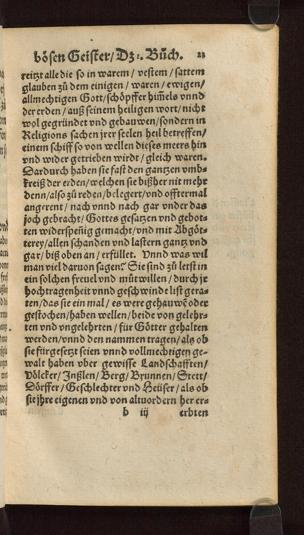 bösen Geister/ Dz j. Bůch. 23
reitzt alle die so in warem/ vestem/ sattem
glauben zů dem einigen/ waren/ ewigen/
allmechtigen Gott/ schöpffer him̄els vnnd
der erden/ auß seinem heiligen wort/ nicht
wol gegründet vnd gebauwen/ sondern in
Religions sachen jrer seelen heil betreffen/
einem schiff so von wellen dieses meers hin
vnd wider getrieben wirdt/ gleich waren.
Dardurch haben sie fast den gantzen vmb-
kreiß der erden/ welchen sie bißher nit mehr
den/ also zů reden/ belegert/ vnd offtermal
angerent/ nach vnnd nach gar vnder das
joch gebracht/ Gottes gesatzen vnd gebot-
ten widerspeñig gemacht/ vnd mit Abgöt-
terey/ allen schanden vnd lastern gantz vnd
gar/ biß oben an/ erfüllet. Vnnd was wil
man viel daruon sagen? Sie sind zů letst in
ein solchen freuel vnd můtwillen/ durch jr
hochtragenheit vnnd geschwinde list gera-
ten/ das sie ein mal/ es were gehauwē oder
gestochen/ haben wellen/ beide von gelehr-
ten vnd vngelehrten/ für Götter gehalten
werden/ vnnd den nammen tragen/ als ob
sie fürgesetzt seien vnnd vollmechtigen ge-
walt haben vber gewisse Landschafften/
Völcker/ Inßlen/ Berg/ Brunnen/ Stett/
Dörffer/ Geschlechter vnd Heüser/ als ob
sie jhre eigenen vnd von altuordern her er-
b iij erbten